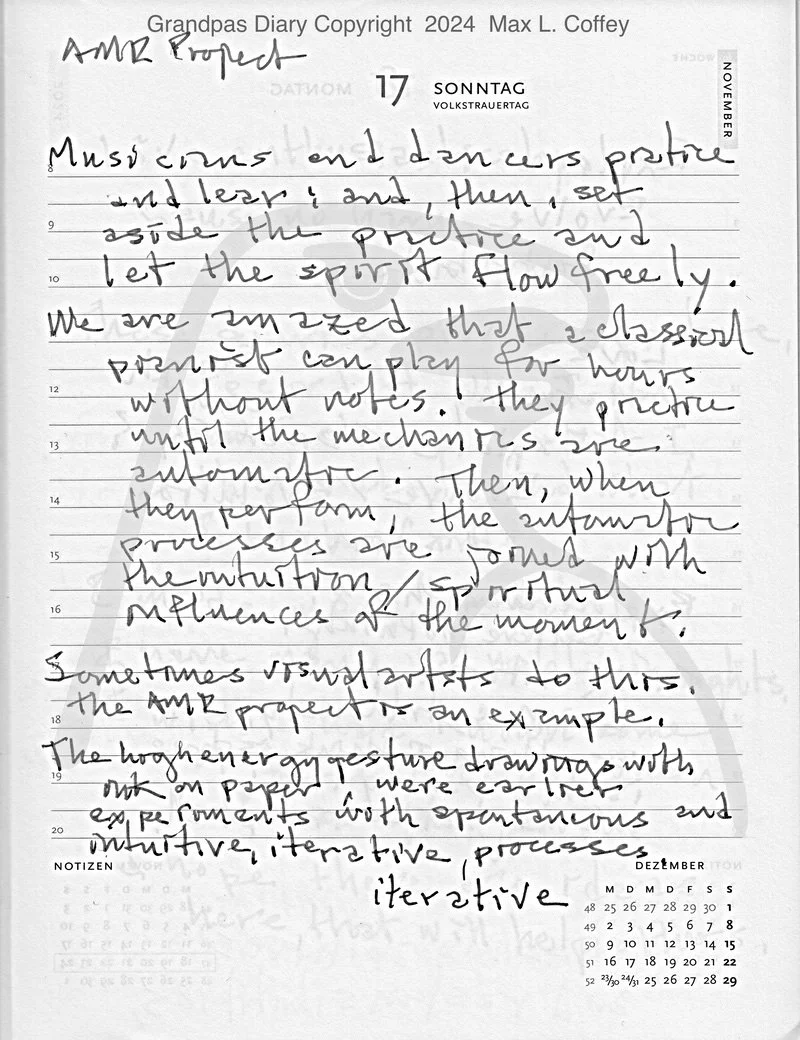 Grandpas Diary Copyright 2024 Max L. Coffey
AMR Project
17 SONNTAG
VOLKSTRAUERTAG
NOVEMBER
Musicians and dancers pratice
8
and lear ; and, then, set
9
aside the practice and
10
let the spirit flow freely.
We are amazed that a classical
pianist can play for hours
12
without notes. They practice
13
until the mechanics are
automatic. Then, when
14
they perform, the automatic
15
processes are joined with
the intuition / spiritual
16
influences of the moment.
Sometimes visual artsts to this.
18
The AMR project is an example.
The high energy gesture drawings with
19
ink on paper, were earlier
experiments with spontaneous and
20
intuitive, iterative, processes.
NOTIZEN
iterative
DEZEMBER
M D M D F S S
48 25 26 27 28 29 30 1
49 2 3 4 5 6 7 8
50 9 10 11 12 13 14 15
51 16 17 18 19 20 21 22
52 23/30 24/31 25 26 27 28 29